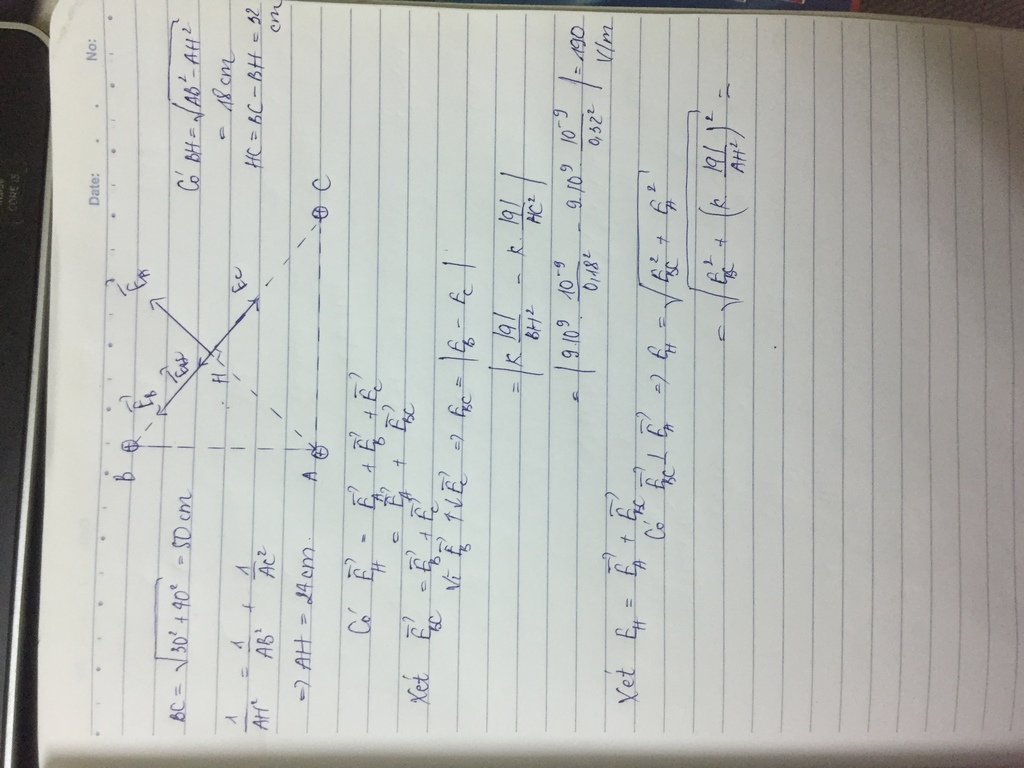 Date: No:
BC = √30² + 40² = 50 cm
1/AH² = 1/AB² + 1/AC²
=> AH = 24 cm.
B
E_B
E_A
H
E_C
A
C
Có BH = √AB² - AH²
= 18 cm
HC = BC - BH = 32 cm
Có E_H = E_A + E_B + E_C
= E_A + E_BC
Xét E_BC = E_B + E_C
Vì E_B ↑↓ E_C => E_BC = |E_B - E_C|
= |k |q|/BH² - k. |q|/HC²|
= |9.10⁹. 10⁻⁹/0,18² - 9.10⁹. 10⁻⁹/0,32²| = 190 V/m
Xét E_H = E_A + E_BC
Có E_BC ⊥ E_A => E_H = √E_BC² + E_A²
= √E_BC² + (k. |q|/AH²)² =